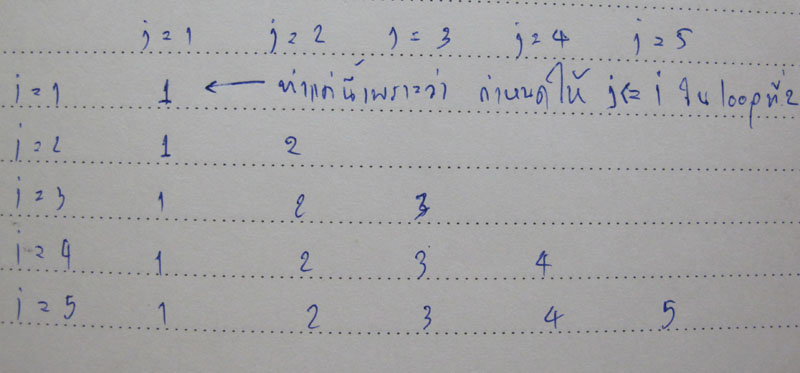 j = 1 j = 2 j = 3 j = 4 j = 5
i = 1 1 ← ทำแค่นี้เพราะว่า กำหนดให้ j <= i ใน loop ที่ 2
i = 2 1 2
i = 3 1 2 3
i = 4 1 2 3 4
i = 5 1 2 3 4 5